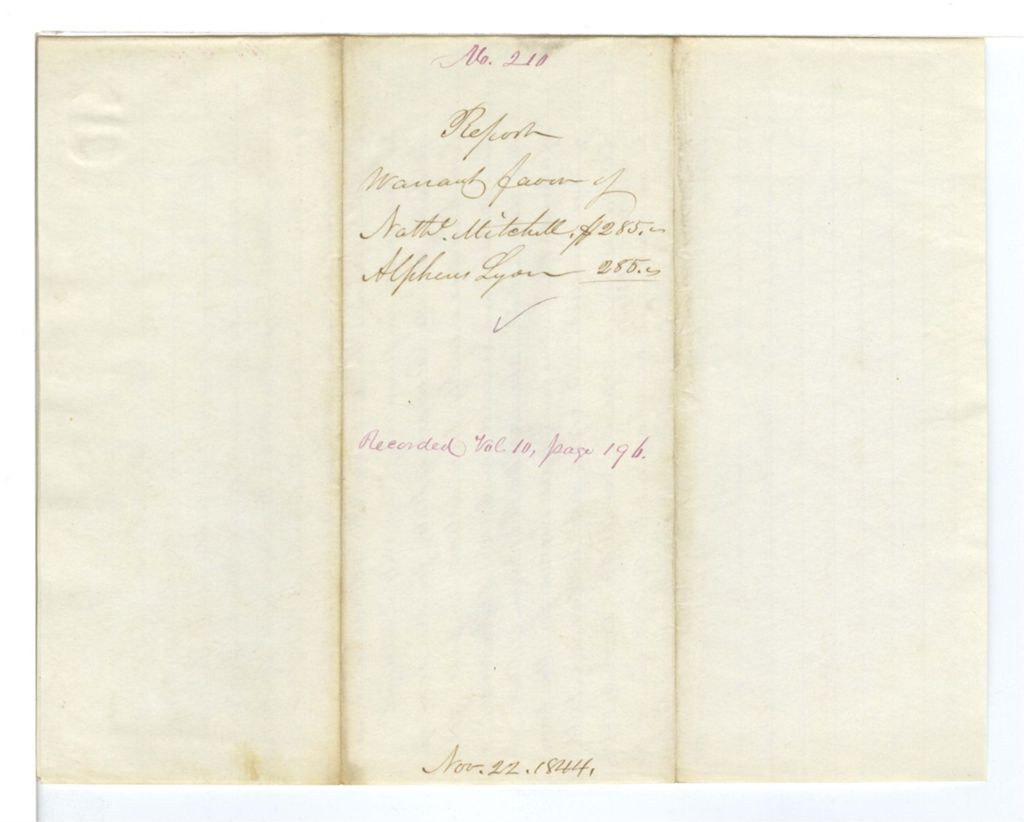 No. 210
Report
Warrant favor of
Nathl. Mitchell, $285.
Alpheus Lyon 285.
Recorded Vol 10, page 196.
Nov. 22. 1844.